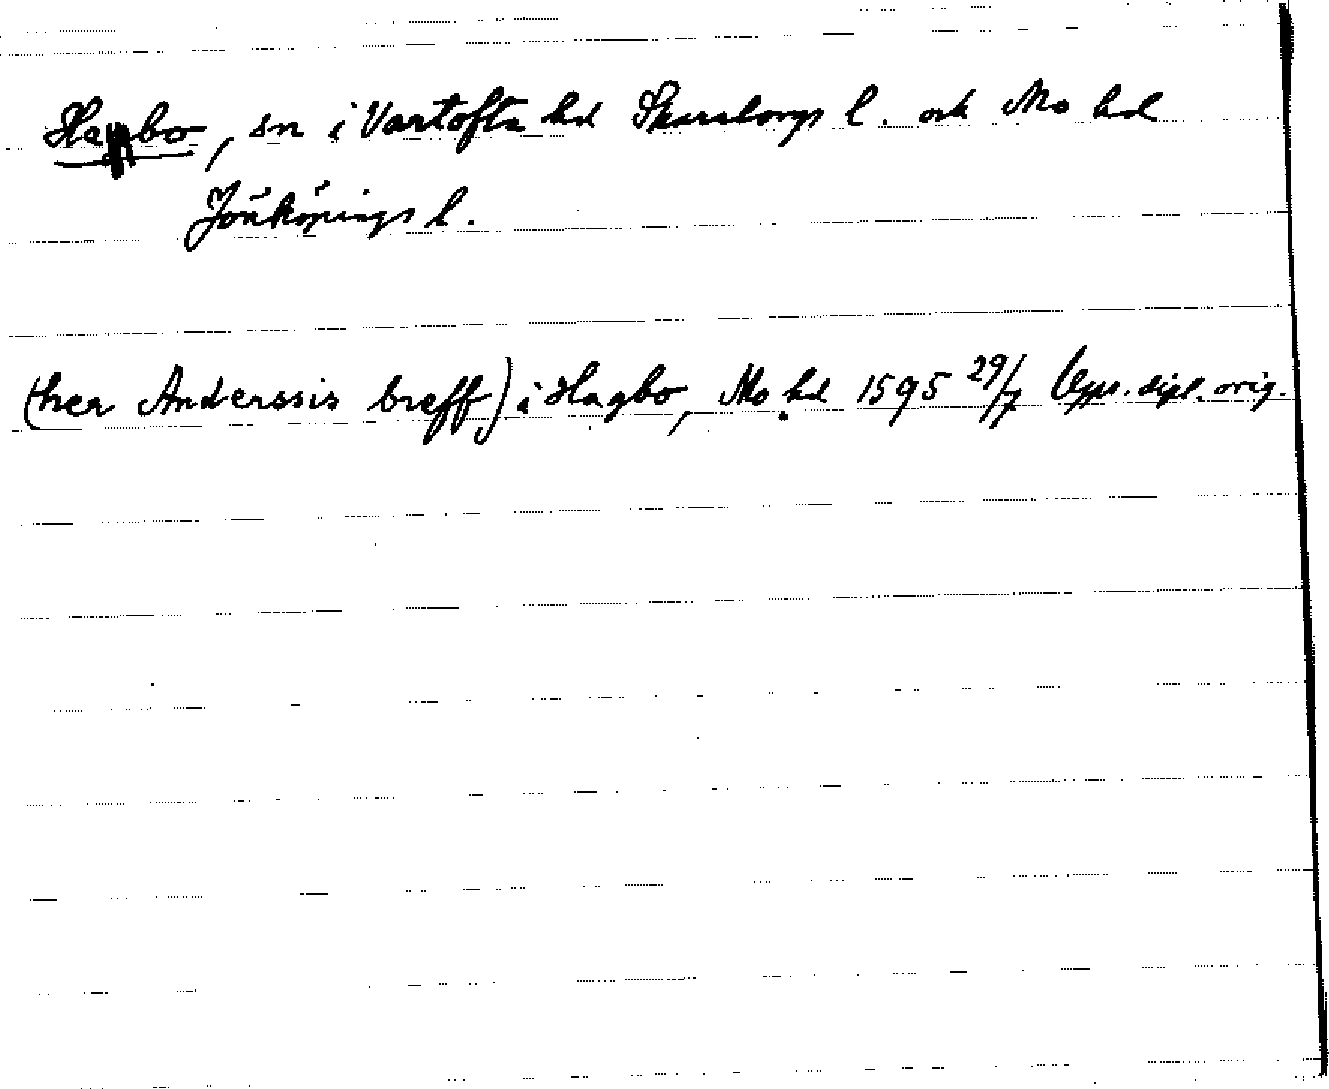 Habo, sn i Vartofta hd Skaraborgs l. och Mo hd
Jönköpings l.
(her Anderssis breff) i Hagbo, Mo hd 1595 29/7 Upps. dipl. orig.